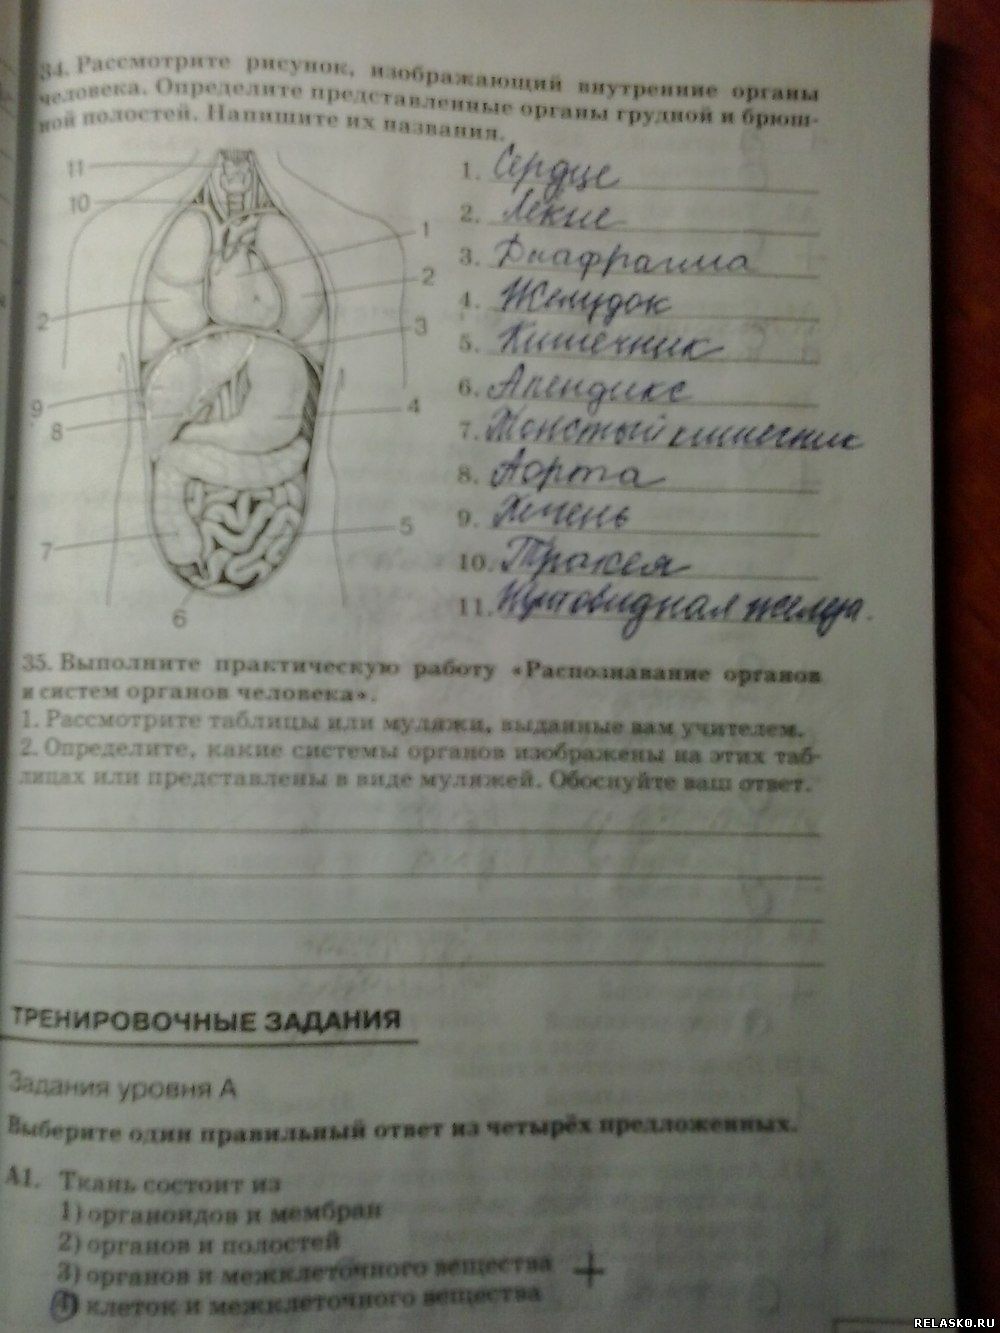 34. Рассмотрите рисунок, изображающий внутренние органы
человека. Определите представленные органы грудной и брюш-
ной полостей. Напишите их названия.
11
10
1
2
2
3
9
8
4
5
7
6
1. Сердце
2. Лёкие
3. Диафрагма
4. Желудок
5. Кишечник
6. Апендикс
7. Толстый кишечник
8. Аорта
9. Печень
10. Трахея
11. Щитовидная железа.
35. Выполните практическую работу «Распознавание органов
и систем органов человека».
1. Рассмотрите таблицы или муляжи, выданные вам учителем.
2. Определите, какие системы органов изображены на этих таб-
лицах или представлены в виде муляжей. Обоснуйте ваш ответ.
ТРЕНИРОВОЧНЫЕ ЗАДАНИЯ
Задания уровня А
Выберите один правильный ответ из четырёх предложенных.
А1. Ткань состоит из
1) органоидов и мембран
2) органов и полостей
3) органов и межклеточного вещества +
4) клеток и межклеточного вещества
RELASKO.RU